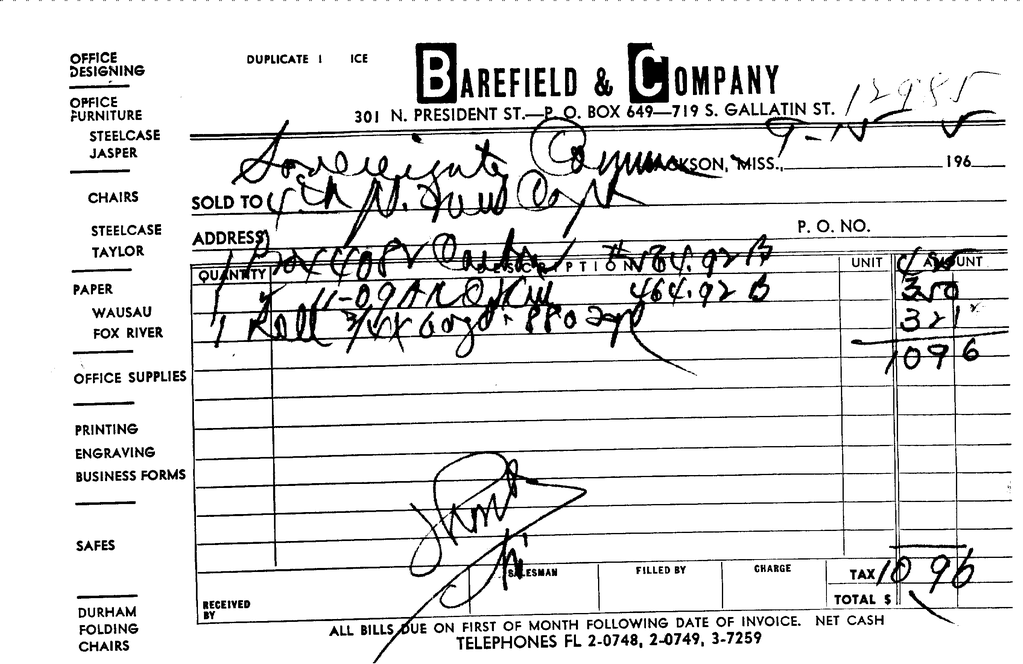 OFFICE
DESIGNING
DUPLICATE I ICE
BAREFIELD & COMPANY
OFFICE
FURNITURE
301 N. PRESIDENT ST.—P. O. BOX 649—719 S. GALLATIN ST.
12985
STEELCASE
JASPER
Sovereignte Commn JACKSON, MISS., 9-15 196 5
CHAIRS
SOLD TO 4th
STEELCASE
TAYLOR
ADDRESS
P. O. NO.
1 Box 4082 Carbon #464.92 B 425
QUANTITY DESCRIPTION UNIT AMOUNT
PAPER
464.92 B 350
WAUSAU
FOX RIVER
1 Roll 3/4 x 60 yd - 880 321
1096
OFFICE SUPPLIES
PRINTING
ENGRAVING
BUSINESS FORMS
SAFES
SALESMAN
FILLED BY
CHARGE
TAX 10 96
RECEIVED
BY
TOTAL $
DURHAM
FOLDING
CHAIRS
ALL BILLS DUE ON FIRST OF MONTH FOLLOWING DATE OF INVOICE. NET CASH
TELEPHONES FL 2-0748, 2-0749, 3-7259